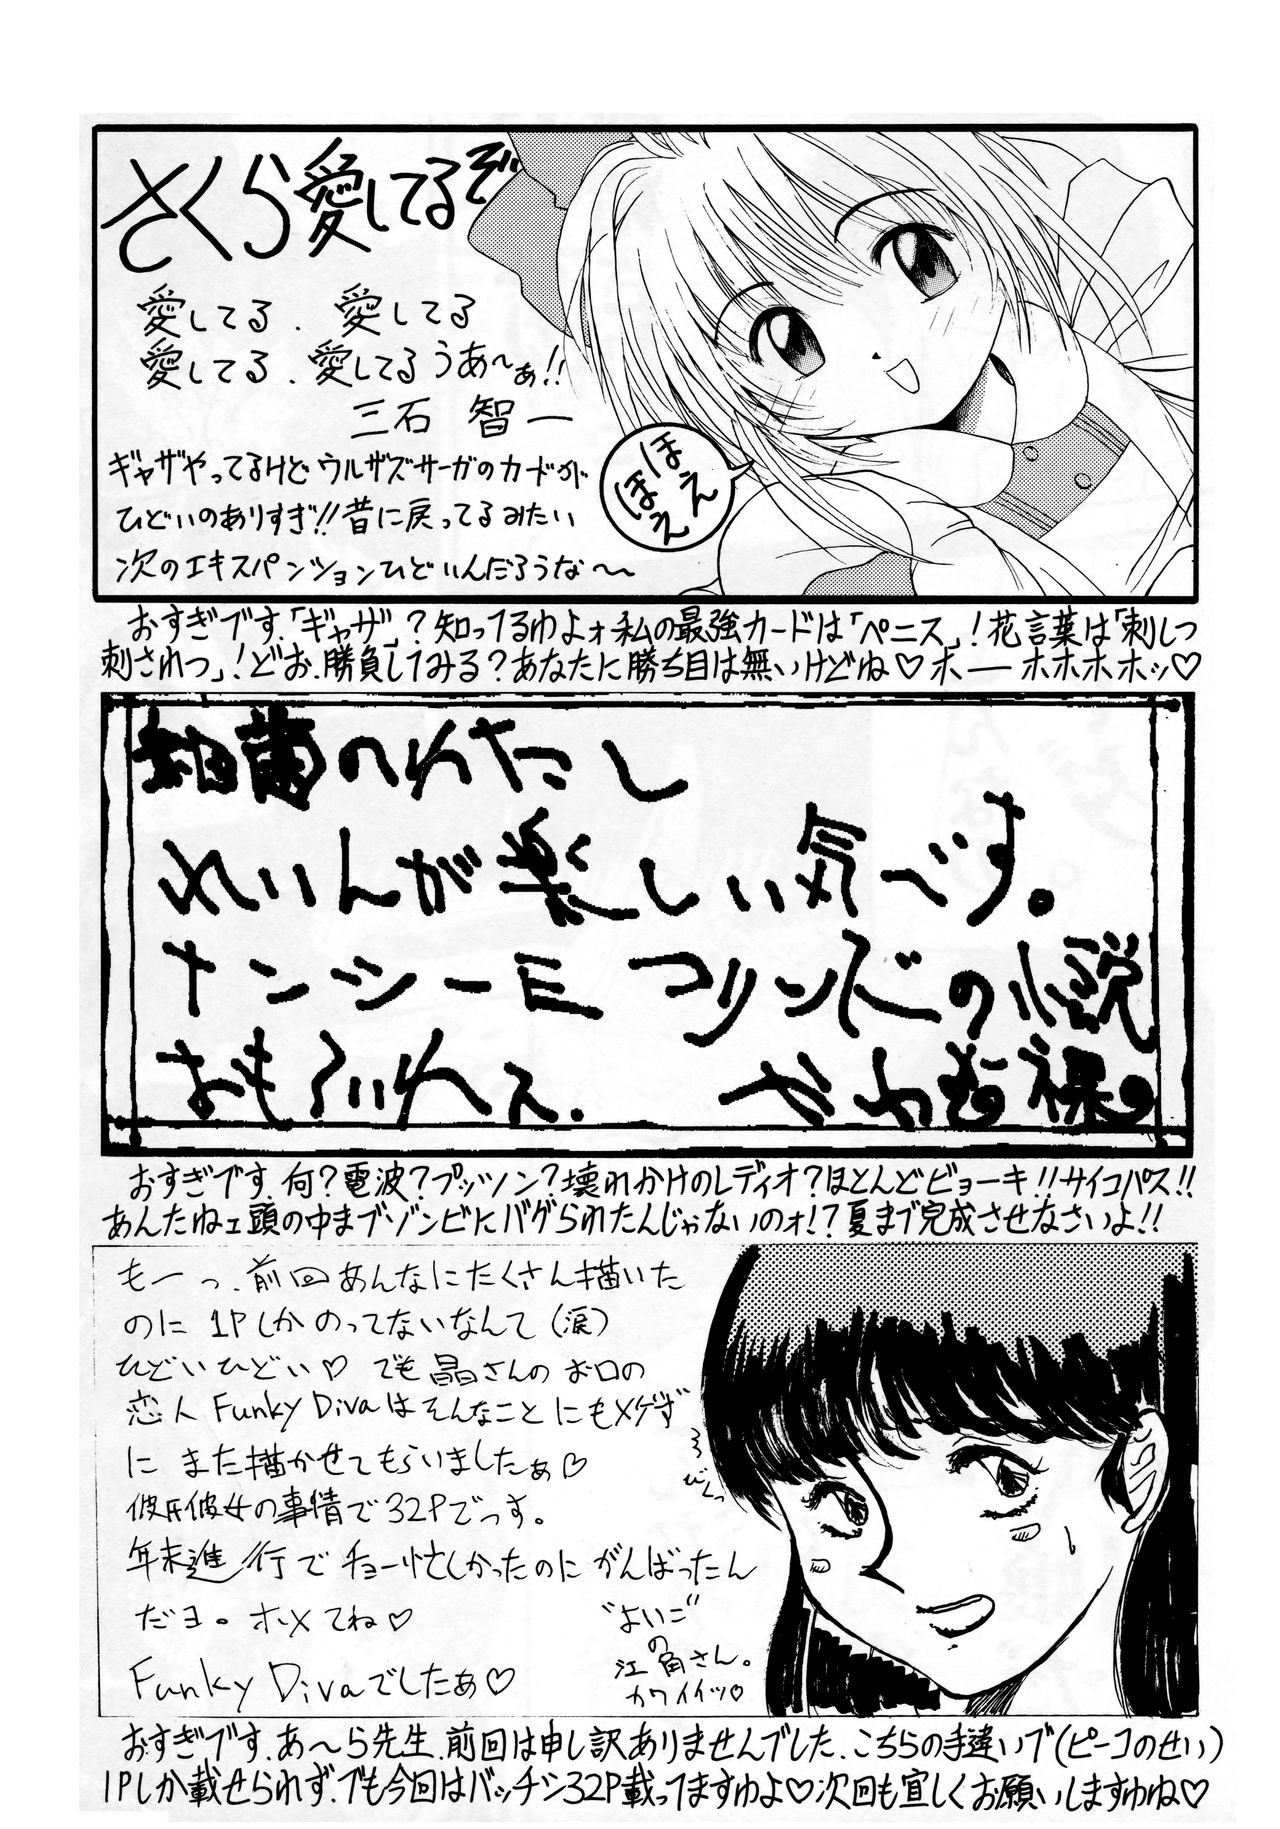 さくら愛してるぞ
愛してる．愛してる
愛してる．愛してるうあ～ぁ!!
三石 智一
ギャザやってるけどウルザズサーガのカードが
ひどいのありすぎ!!昔に戻ってるみたい
次のエキスパンションひどいんだろうな～
ほえ
ほえ
おすぎです.「ギャザ」？知ってるわよォ私の最強カードは「ペニス」！花言葉は「刺しつ
刺されつ」！どお.勝負してみる？あなたに勝ち目は無いけどね♡ホーーホホホホッ♡
細菌のわたし
れいんが楽しい気です。
ナンシーミ コリンズの小説
おもろいねえ．
おすぎです.何？電波？プッツン？壊れかけのレディオ？ほとんどビョーキ!!サイコパス!!
あんたねェ頭の中までゾンビにバゲられたんじゃないのォ!？夏まで完成させなさいよ!!
もーっ.前回あんなにたくさん描いた
のに 1Pしかのってないなんて(涙)
ひどいひどい♡ でも晶さんのお口の
恋人Funky Divaはそんなことにもメゲず
に また描かせてもらいましたぁ♡
彼氏彼女の事情で32Pでっす。
年末進行でチョー忙しかったのに がんばったん
だヨ。ホメてね♡
Funky Divaでしたぁ♡
びくっ
"よいこ"
の
江角さん。
カワイイッ♡
おすぎです.あ～ら先生.前回は申し訳ありませんでした.こちらの手違いで(ピーコのせい)
1Pしか載せられず.でも今回はバッチシ32P載ってますわよ♡次回も宜しくお願いしますわね♡